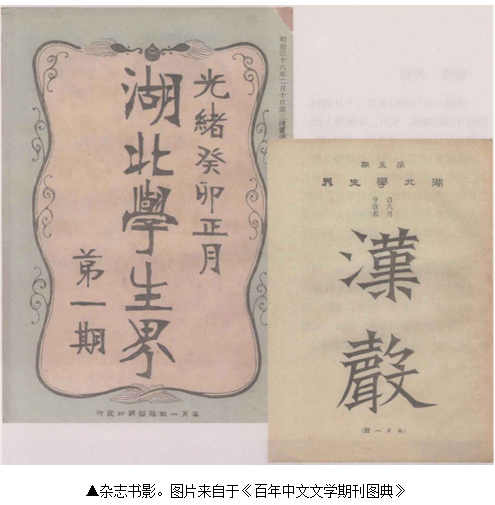 光緒癸卯正月
湖北學生界
第一期
第五期
湖北學生界
自六月
分改名
漢聲
▲杂志书影。图片来自于《百年中文文学期刊图典》